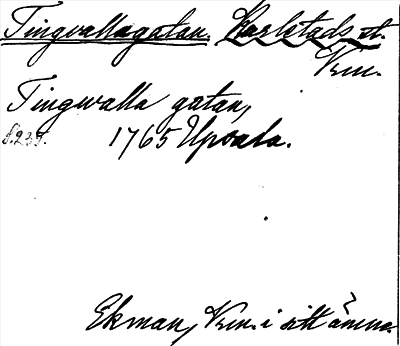 Tingvallagatan. Karlstads st.
Vrm.
Tingwalla gatan,
s. 235. 1765 Upsala.
Ekman, Vrm. i sitt ämne.